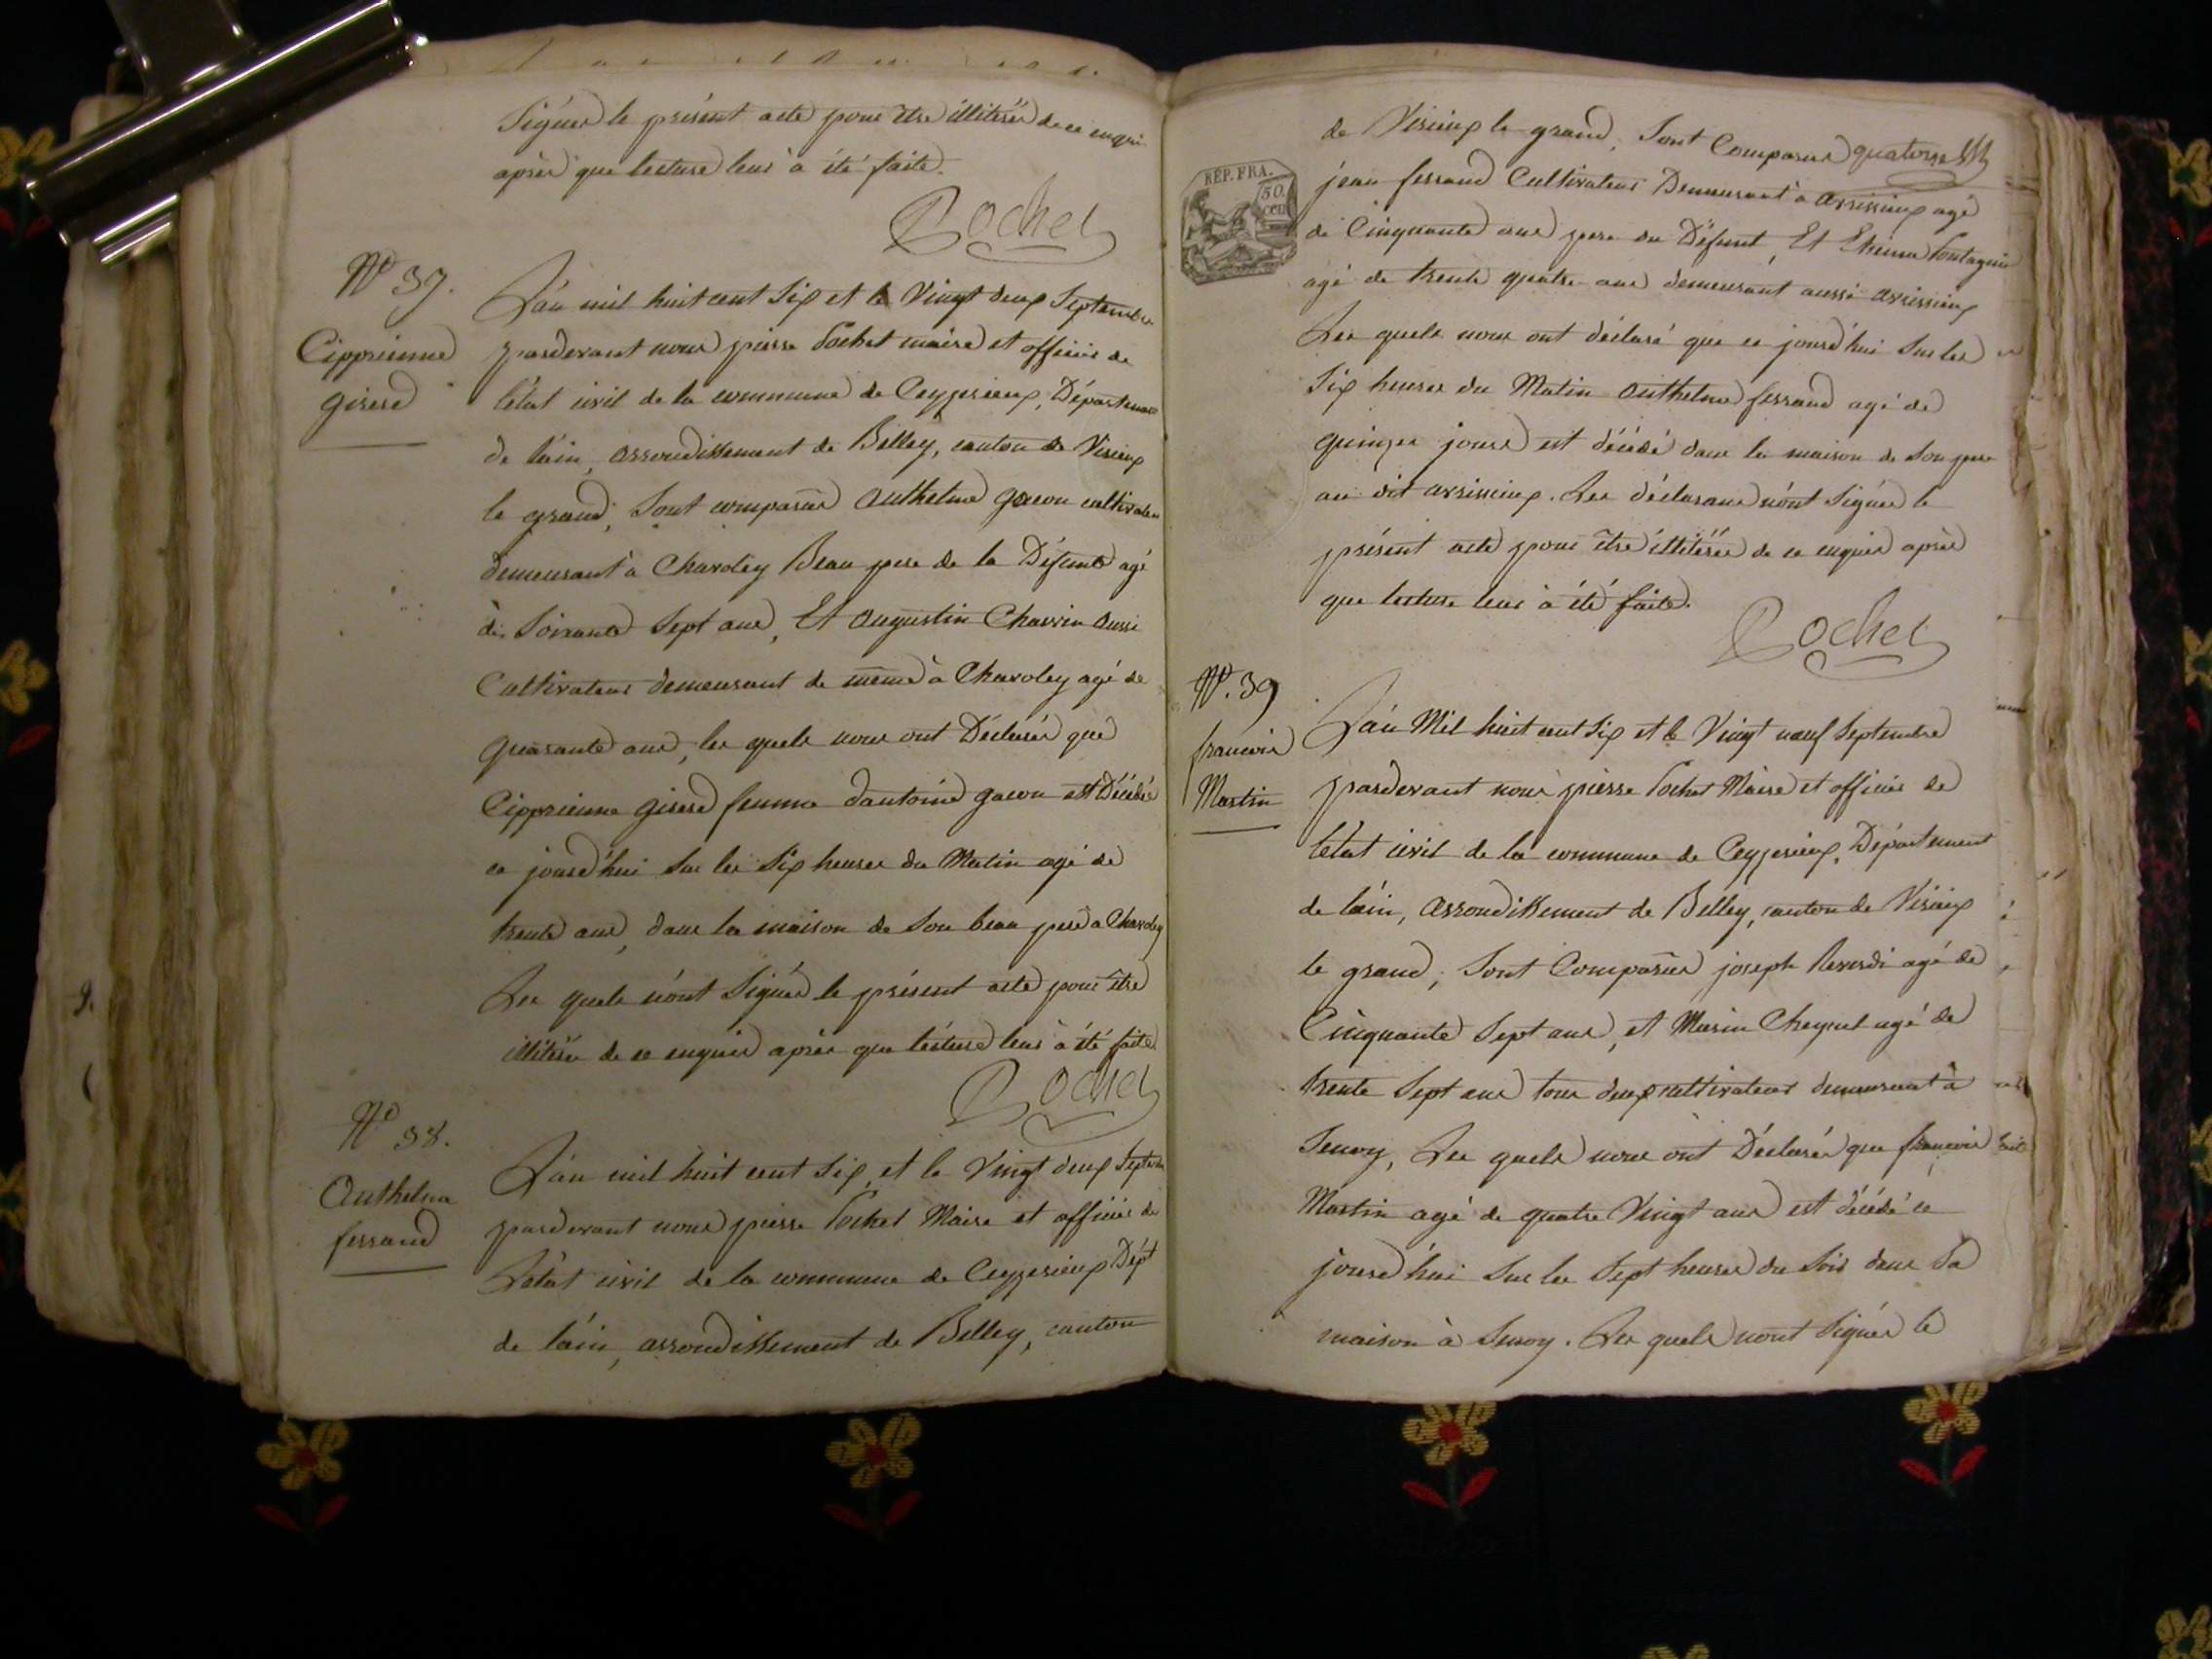 Signés le présent acte pour être illiterés de ce enquis
après que lecture leur à été faite.
Pochet
No 37.
Cipprienne
girerd
L'an mil huit cent Six et le Vingt deux Septembre
pardevant nous pierre Pochet maire et officier de
l'état civil de la commune de Ceyzerieux, Département
de l'ain, arrondissement de Belley, canton de Virieux
le grand, Sont comparus anthelme gacon cultivateur
demeurant à Charoley Beau pere de la Défunte agé
de Soixante Sept ans, Et augustin Charvin aussi
Cultivateur demeurant de meme à Charoley agé de
quarante ans, les quels nous ont Déclarés que
Cipprienne girerd femme d'antoine gacon est Décédée
ce jourd'hui Sur les Six heures du Matin agé de
trente ans, dans la maison de Son beau pere à Charoley
Les quels n'ont Signés le présent acte pour être
illiterés de ce enquis après que lecture leur à été faite
Pochet
No 38.
Anthelme
ferrand
L'an mil huit cent Six, et le Vingt deux Septembre
pardevant nous pierre Pochet Maire et officier de
L'état civil de la commune de Ceyzerieux Dépt
de l'ain, arrondissement de Belley, canton
de Virieux le grand, Sont Comparus quatorse
RÉP. FRA.
50
cen
jean ferrand Cultivateur Demeurant à avrissieux agé
de Cinquante ans pere du Défunt, Et Etienne
agé de trente quatre ans demeurant aussi avrissieux
Les quels nous ont déclaré que ce jourd'hui Sur les
Six heures du Matin anthelme ferrand agé de
quinze jours est décédé dans la maison de Son pere
au dit avrissieux. Les déclarans n'ont Signés le
présent acte pour être illiterés de ce enquis après
que lecture leur à été faite.
Pochet
No. 39
francois
Martin
L'an Mil huit cent Six et le Vingt neuf Septembre
pardevant nous pierre Pochet Maire et officier de
l'état civil de la commune de Ceyzerieux, Département
de l'ain, arrondissement de Belley, canton de Virieux
le grand, Sont Comparus joseph Reverdi agé de
Cinquante Sept ans, et Marin Cheynel agé de
trente Sept ans tous deux cultivateurs demeurant à
Senoy, Les quels nous ont Déclarés que francois
Martin agé de quatre Vingt ans est décédé ce
jourd'hui Sur les Sept heures du Soir dans Sa
maison à Senoy. Les quels n'ont Signés le